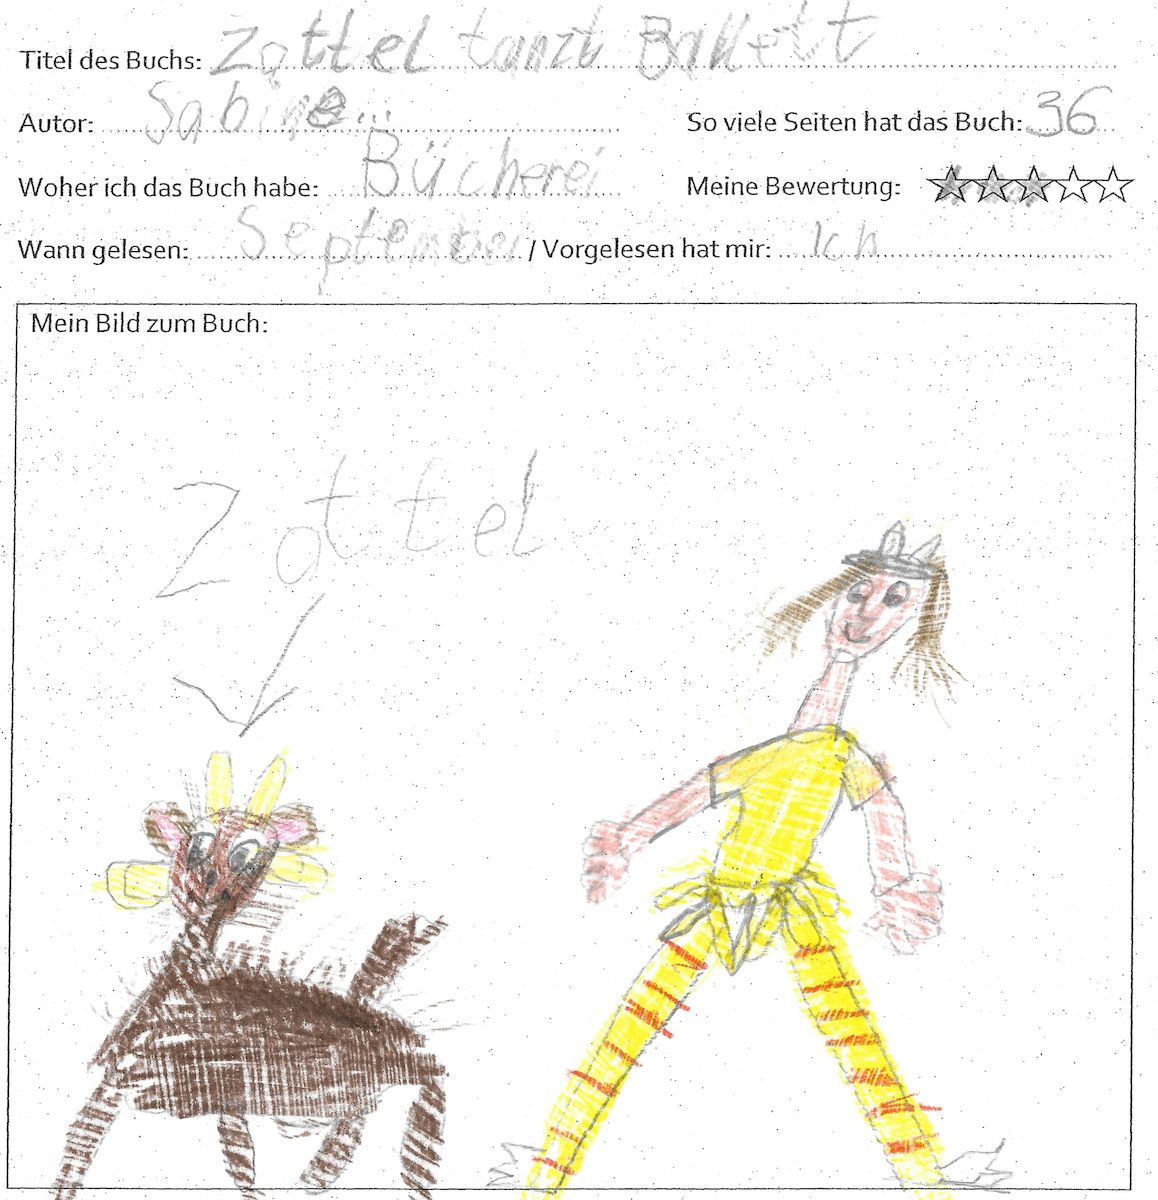 Titel des Buchs: Zottel tanzt Ballett
Autor: Sabine... So viele Seiten hat das Buch: 36
Woher ich das Buch habe: Bücherei Meine Bewertung:
Wann gelesen: September / Vorgelesen hat mir: Ich
Mein Bild zum Buch:
Zottel